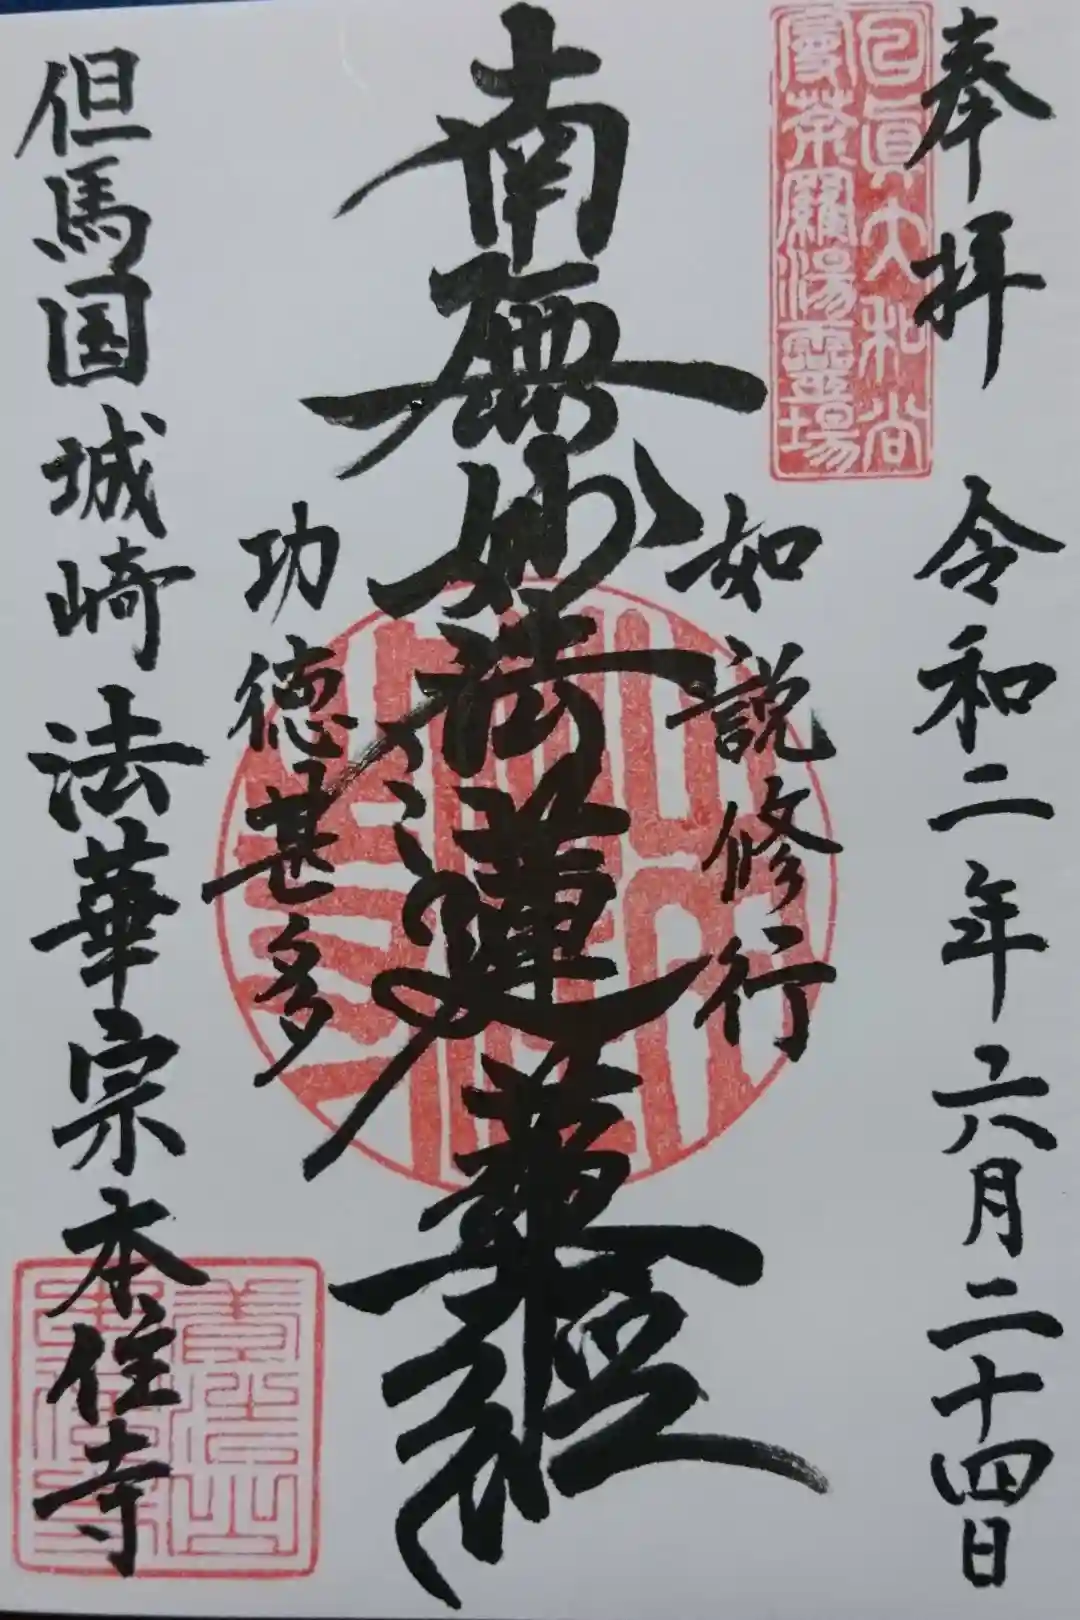 奉拝 令和二年六月二十四日
日真大和尚
曼荼羅湯霊場
如説修行
南無妙法蓮華経
功徳甚多
但馬国城崎法華宗本住寺